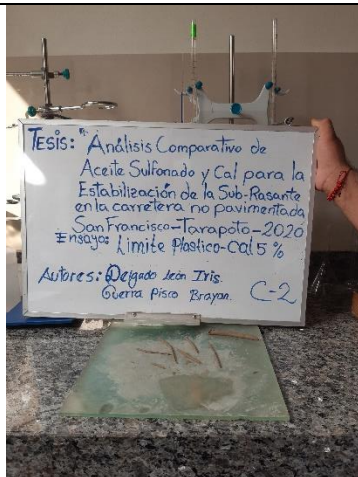 Tesis: "Análisis Comparativo de
Aceite Sulfonado y Cal para la
Estabilización de la Sub-Rasante
en la carretera no pavimentada
San Francisco-Tarapoto-2020
Ensayo: Limite Plastico-Cal 5 %
Autores: Delgado León Iris.
Guerra Pisco Brayan.
C-2